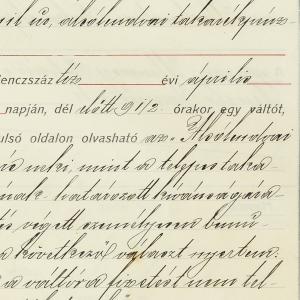 il úr, alsólendvai takarékpénz-
lenczszáz tíz évi április
napján, dél előtt 9 1/2 órakor egy váltót,
ulsó oldalon olvasható az "Alsólendvai
neki, mint a telepes taka-
határozott kívánságára
és végett személyesen bemu-
a következő választ nyertem:
a váltóra fizetést nem tel-